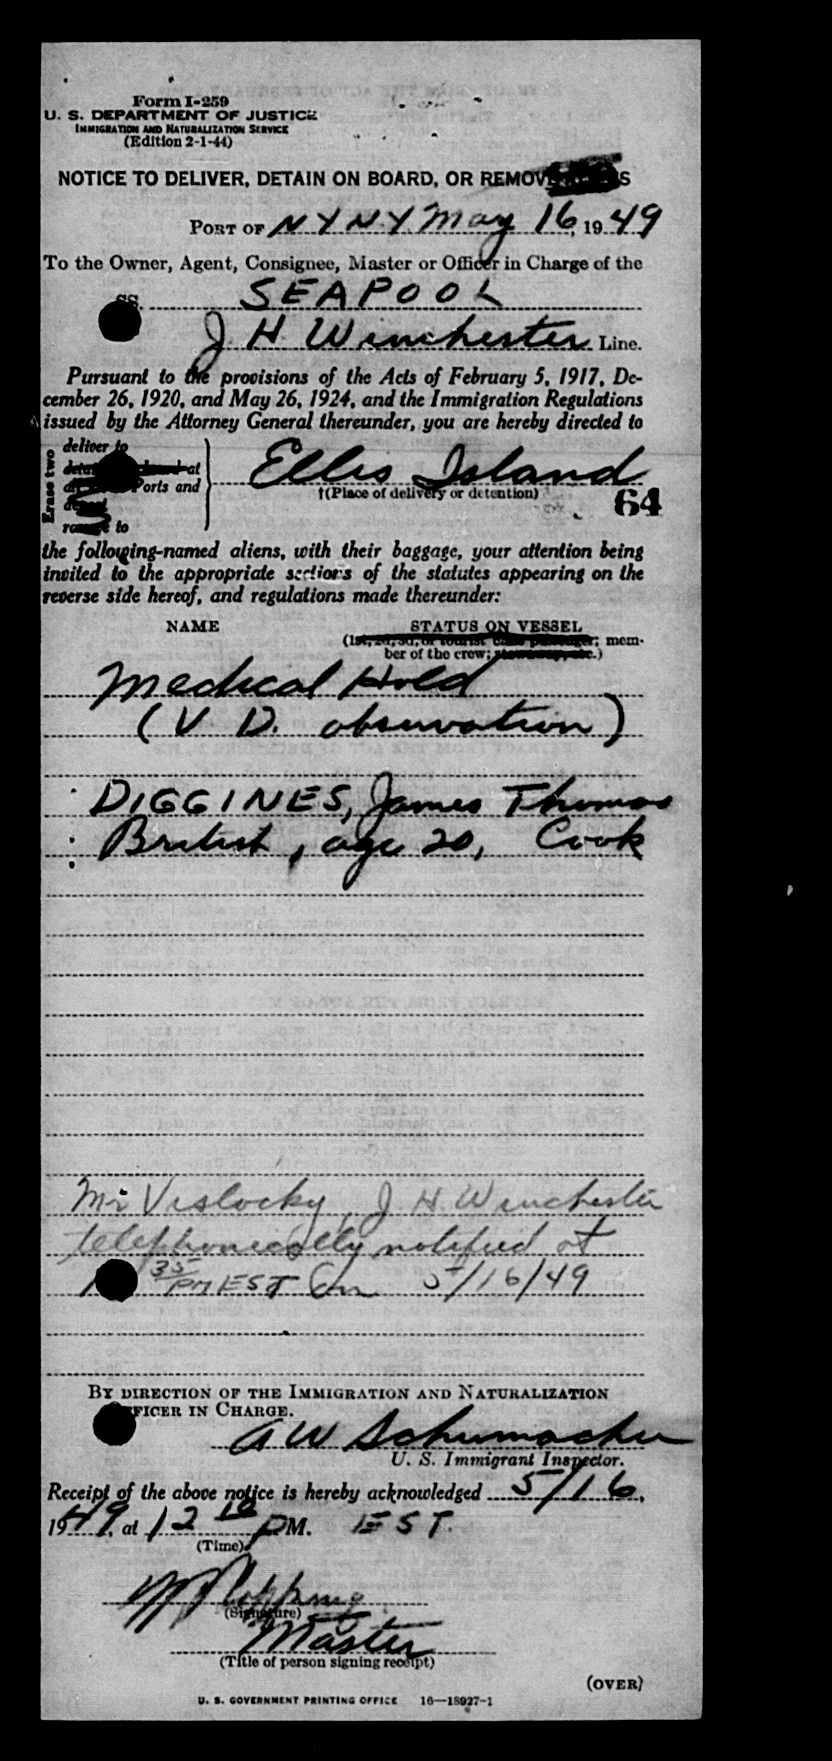 Form I-259
U. S. DEPARTMENT OF JUSTICE
IMMIGRATION AND NATURALIZATION SERVICE
(Edition 2-1-44)
NOTICE TO DELIVER, DETAIN ON BOARD, OR REMOVE
PORT OF N Y N. Y. May 16, 1949
To the Owner, Agent, Consignee, Master or Officer in Charge of the
SS. SEAPOOL
J H Winchester Line.
Pursuant to the provisions of the Acts of February 5, 1917, De-
cember 26, 1920, and May 26, 1924, and the Immigration Regulations
issued by the Attorney General thereunder, you are hereby directed to
Erase two
deliver to
at
Ports and
to
Ellis Island
†(Place of delivery or detention)
64
the following-named aliens, with their baggage, your attention being
invited to the appropriate sections of the statutes appearing on the
reverse side hereof, and regulations made thereunder:
NAME STATUS ON VESSEL
(1st, 2d, 3d, or tourist class passenger; mem-
ber of the crew; stowaway, etc.)
Medical Hold
(V D. observation)
DIGGINES, James Thomas
British, age 20, Cook
Mr Vislocky, J H. Winchester
telephonically notified at
35 PM EST on 5/16/49
BY DIRECTION OF THE IMMIGRATION AND NATURALIZATION
OFFICER IN CHARGE.
A W Schumacher
U. S. Immigrant Inspector.
Receipt of the above notice is hereby acknowledged 5/16,
1949, at 12 10 PM. EST.
(Time)
(Signature)
Master
(Title of person signing receipt)
(OVER)
U. S. GOVERNMENT PRINTING OFFICE 16—18927-1